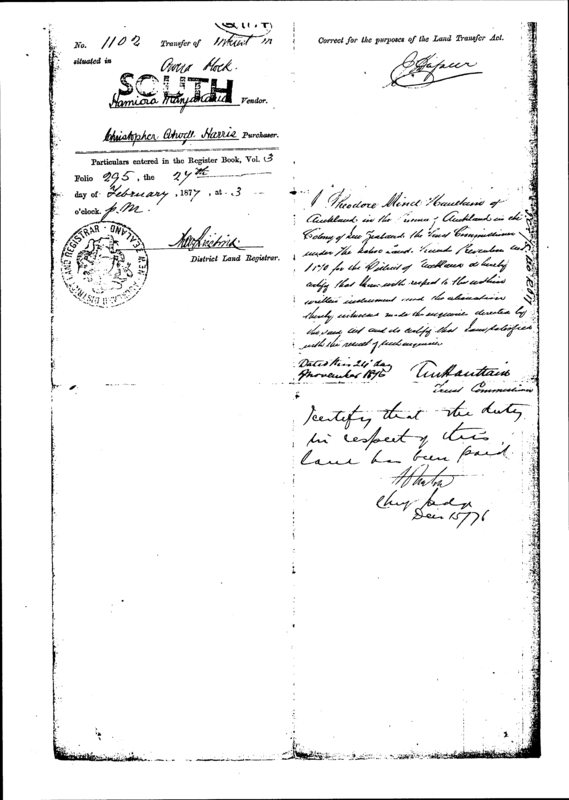 No. 1102 Transfer of Interest in
situated in Block.
SOUTH
Hamiora Vendor.
Christopher Atwell Harris Purchaser.
Particulars entered in the Register Book, Vol. 13
Folio 295, the 27th
day of February, 1877, at 3
o'clock. p.m.
District Land Registrar.
DISTRICT LAND REGISTRAR · NEW ZEALAND
Correct for the purposes of the Land Transfer Act.
I Theodore Minet Haultain of
Auckland in the Auckland in the
Colony of New Zealand the Trust Commissioner
under the Native Lands Frauds Prevention Act
1870 for the District of Auckland do hereby
certify that I have with respect to the within
written instrument and the alienation
thereby made the enquiries directed by
the said Act and do certify that I am satisfied
with the result of such enquiries
Dated this 24th day
November 1876
TM Haultain
Trust Commissioner
I certify that the duty
in respect of this
land has been paid
Chief Judge
Decr 15/76